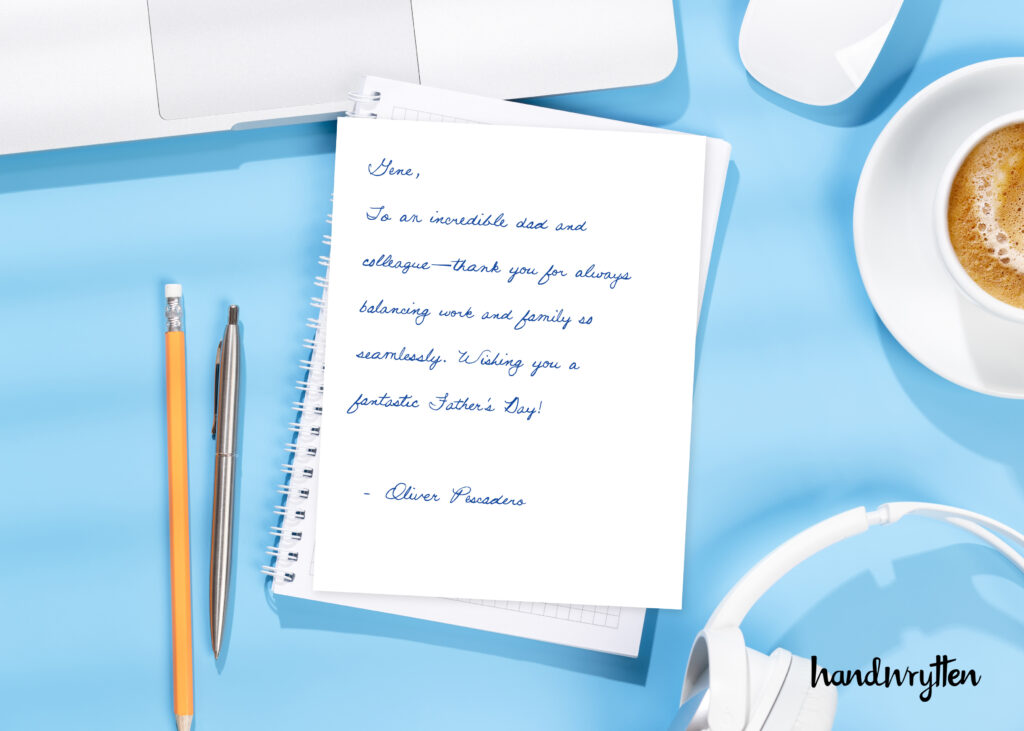 Gene,
To an incredible dad and
colleague—thank you for always
balancing work and family so
seamlessly. Wishing you a
fantastic Father's Day!
- Oliver Pescadero
handwrytten